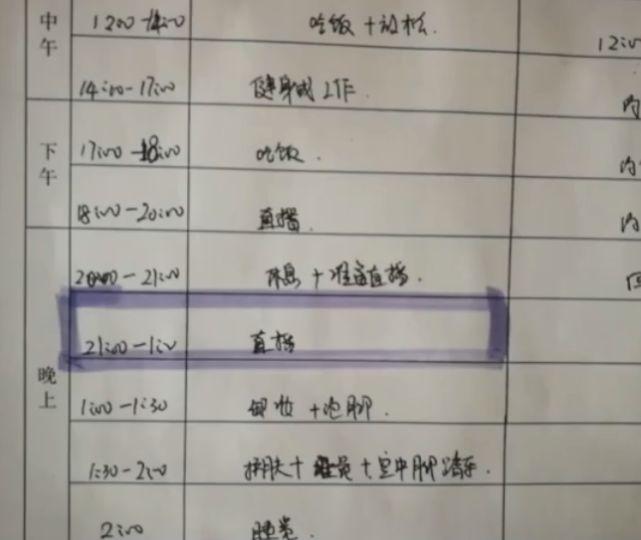 中午
12:00-14:00 吃饭+放松.
12:00
14:00-17:00 健身或工作.
内
下午
17:00-18:00 吃饭.
内
18:00-20:00 直播.
内
晚上
20:00-21:00 休息+准备直播.
21:00-1:00 直播
1:00-1:30 卸妆+泡脚.
1:30-2:00 护肤+
+空中脚踏车.
2:00 睡觉.